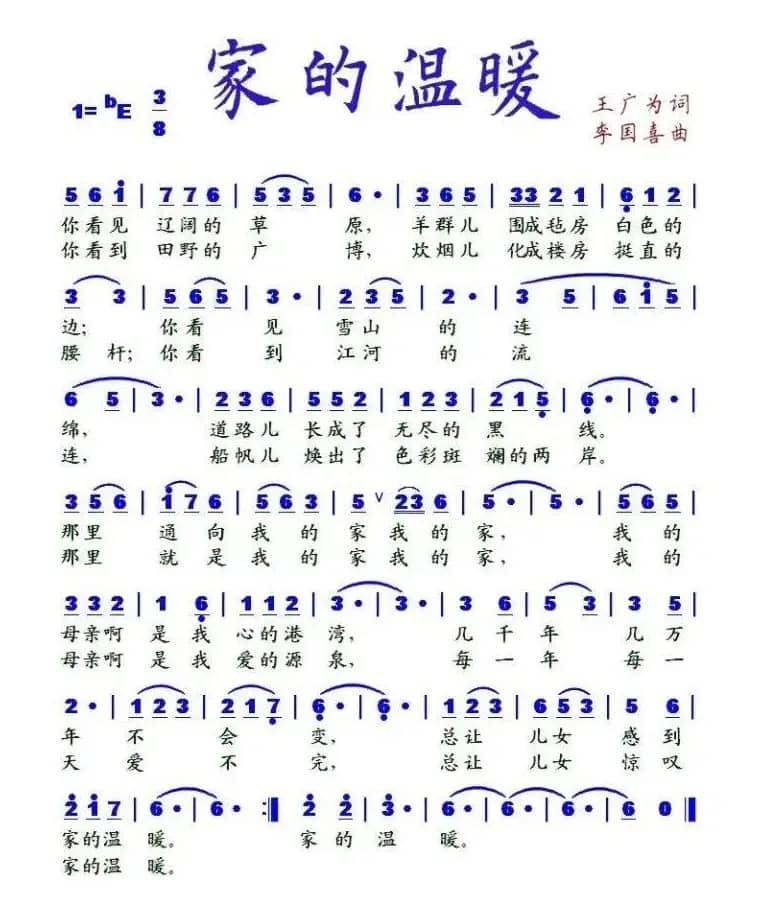 家的温暖
1= ᵇE 3/8
王广为词
李国喜曲
5 6 i | 7 7 6 | 5 3 5 | 6 · | 3 6 5 | 33 2 1 | 6 1 2 |
你看见 辽阔的 草 原, 羊群儿 围成毡房 白色的
你看到 田野的 广 博, 炊烟儿 化成楼房 挺直的
3 3 | 5 6 5 | 3 · | 2 3 5 | 2 · | 3 5 | 6 i 5 |
边; 你看 见 雪山 的 连
腰 杆; 你看 到 江河 的 流
6 5 | 3 · | 2 3 6 | 5 5 2 | 1 2 3 | 2 1 5 | 6 · | 6 · |
绵, 道路儿 长成了 无尽的 黑 线。
连, 船帆儿 焕出了 色彩斑 斓的两 岸。
3 5 6 | i 7 6 | 5 6 3 | 5 ∨ 23 6 | 5 · | 5 · | 5 6 5 |
那里 通向 我的 家我的 家, 我的
那里 就是 我的 家我的 家, 我的
3 3 2 | 1 6 | 1 1 2 | 3 · | 3 · | 3 6 | 5 3 | 3 5 |
母亲啊 是我 心的港 湾, 几千年 几万
母亲啊 是我 爱的源 泉, 每一年 每一
2 · | 1 2 3 | 2 1 7 | 6 · | 6 · | 1 2 3 | 6 5 3 | 5 6 |
年 不 会 变, 总让 儿女 感到
天 爱 不 完, 总让 儿女 惊叹
2 i 7 | 6 · | 6 · :‖ 2 2 | 3 · | 6 · | 6 · | 6 · | 6 0 ‖
家的温 暖。 家的温 暖。
家的温 暖。